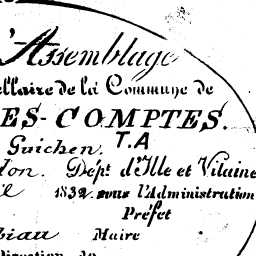 'Assemblage
ellaire de la Commune de
ES-COMPTES.
Guichen. T.A
Dépt. d'Ille et Vilaine
1832 sous l'Administration
Préfet
Maire
Direction de